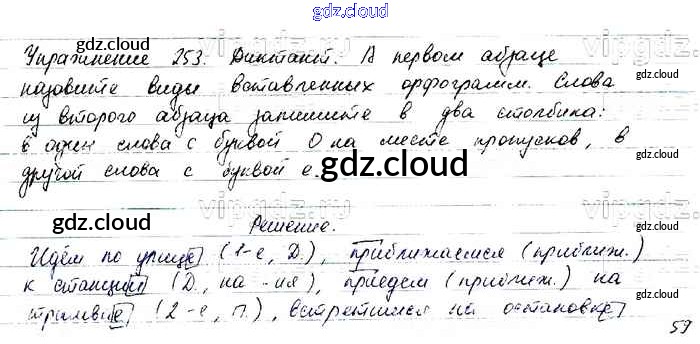 gdz.cloud
gdz.cloud
gdz.cloud
Упражнение 253. Диктант. В первом абзаце
назовите виды вставленных орфограмм. Слова
из второго абзаца запишите в два столбика:
в один слова с буквой О на месте пропусков, в
другой слова с буквой е.
gdz.cloud
gdz.cloud
gdz.cloud
vipgdz.ru
Решение.
Идём по улице (1-е, Д.), приближаемся (приближ.)
к станции (Д., на -ия), приедем (приближ.) на
трамвае (2-е, П.), встретимся на остановке
59